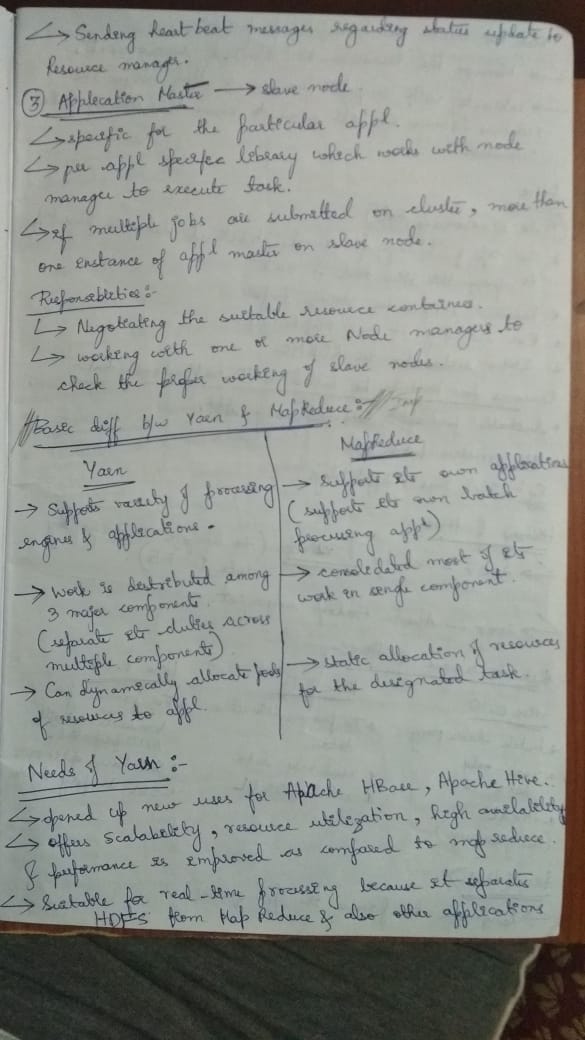 ↳ Sending heart beat messages regarding status update to
Resource manager.
③ Application Master → slave node
↳ specific for the particular appl.
↳ per appl specific library which works with node
manager to execute task.
↳ if multiple jobs are submitted on cluster, more than
one instance of appl master on slave node.
Responsibilities :-
↳ Negotiating the suitable resource container.
↳ working with one or more Node managers to
check the proper working of slave nodes.
Basic diff b/w Yarn & MapReduce :-
Yarn
→ Supports variety of processing
engines & applications.
→ work is distributed among
3 major components.
(separate its duties across
multiple components)
→ Can dynamically allocate pools
of resources to appl.
MapReduce
→ supports its own applications
(supports its own batch
processing appl)
→ consolidated most of its
work in single component.
→ static allocation of resources
for the designated task.
Needs of Yarn :-
↳ opened up new uses for Apache HBase, Apache Hive.
↳ offers Scalability, resource utilization, high availability
& performance is improved as compared to map reduce.
↳ Suitable for real-time processing because it separates
HDFS from Map Reduce & also other applications